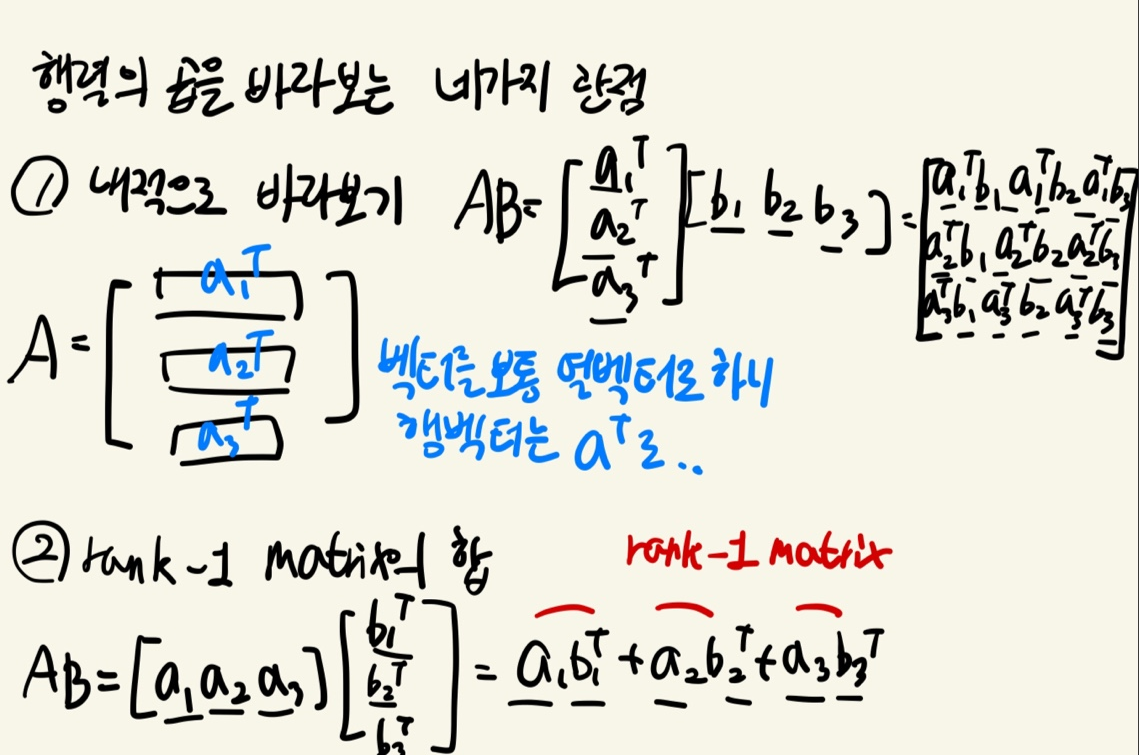 행렬의 곱을 바라보는 네가지 관점
① 내적으로 바라보기 AB= [a₁ᵀ a₂ᵀ a₃ᵀ] [b₁ b₂ b₃] = [a₁ᵀb₁ a₁ᵀb₂ a₁ᵀb₃
a₂ᵀb₁ a₂ᵀb₂ a₂ᵀb₃
a₃ᵀb₁ a₃ᵀb₂ a₃ᵀb₃]
A= [a₁ᵀ
a₂ᵀ
a₃ᵀ]
벡터를 보통 열벡터로 하니
행벡터는 aᵀ로..
② rank-1 matrix의 합
rank-1 matrix
AB= [a₁ a₂ a₃] [b₁ᵀ b₂ᵀ b₃ᵀ] = a₁b₁ᵀ + a₂b₂ᵀ + a₃b₃ᵀ